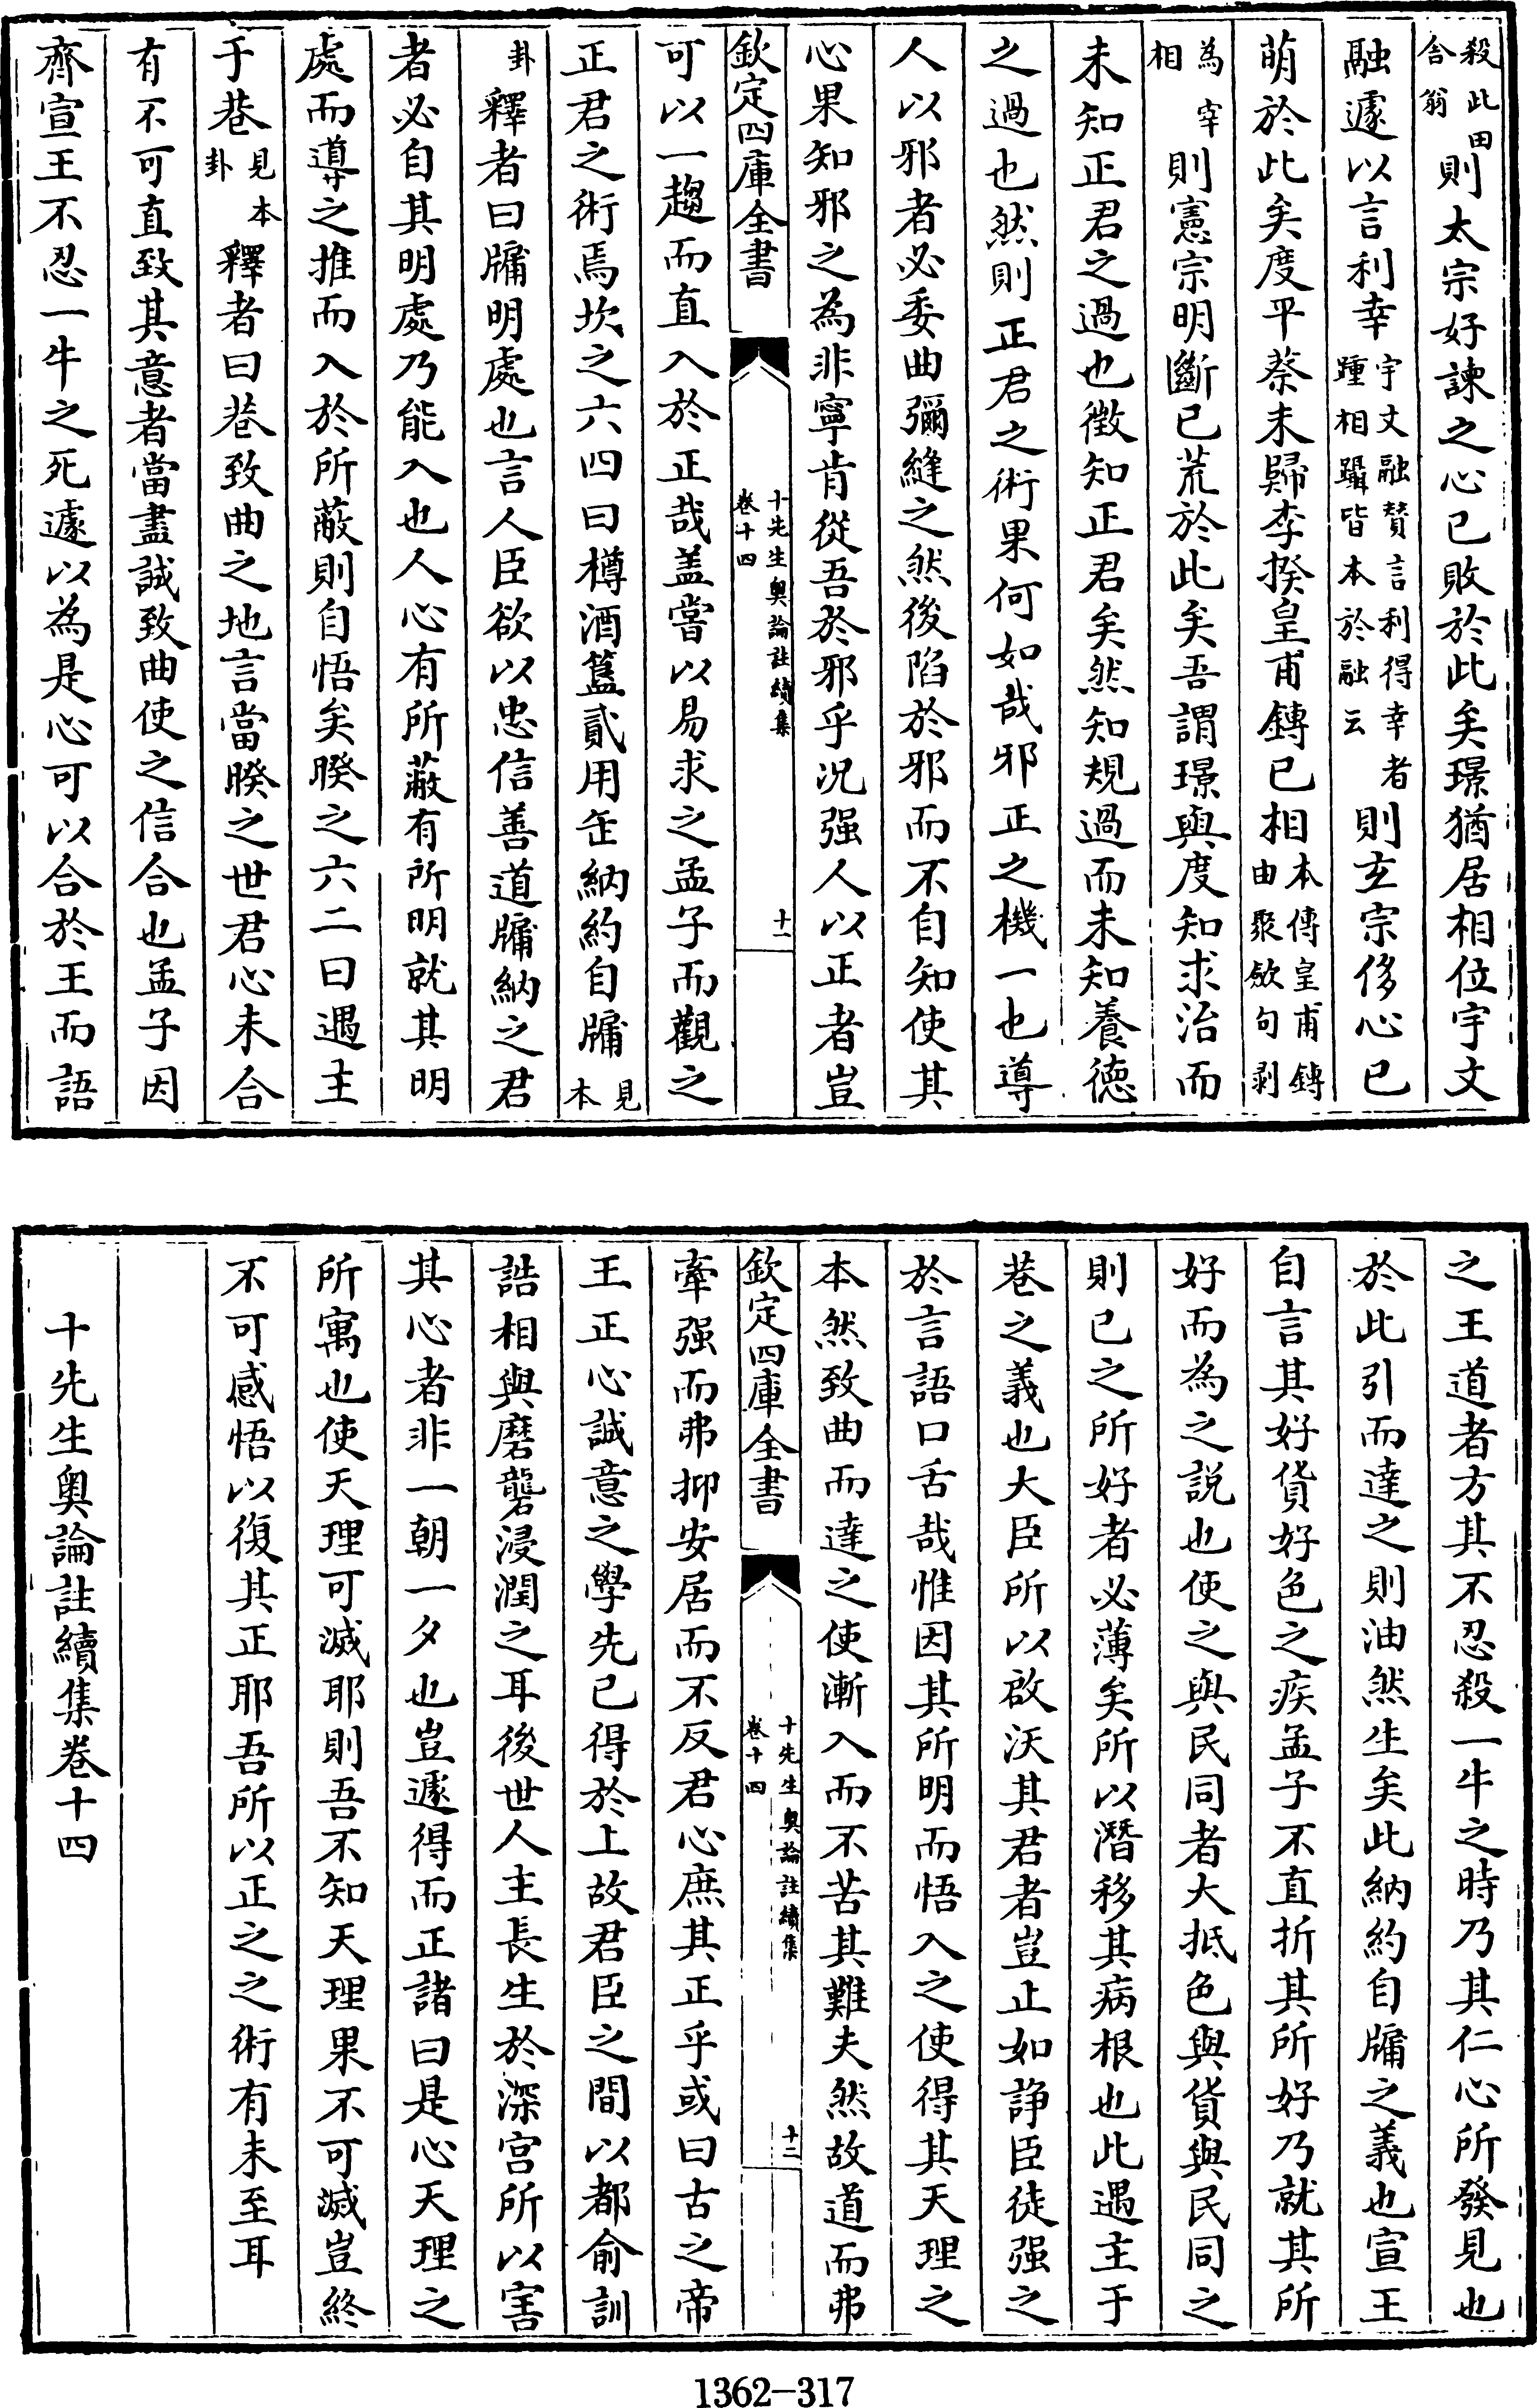 殺此田舎翁則太宗好諫之心已敗於此矣璟猶居相位宇文
融遽以言利幸宇文融賛言利得幸者踵相躡皆本於融云則玄宗侈心已
萌於此矣度平蔡未歸李揆皇甫鏄已相本傳皇甫鏄由聚斂句剥
為宰相則憲宗明斷已荒於此矣吾謂璟與度知求治而
未知正君之過也徴知正君矣然知規過而未知養徳
之過也然則正君之術果何如哉邪正之機一也導
人以邪者必委曲彌縫之然後陷於邪而不自知使其
心果知邪之為非寧肯從吾於邪乎况强人以正者豈
欽定四庫全書
十先生奥論註續集
卷十四
十一
可以一趨而直入於正哉盖嘗以易求之孟子而觀之
正君之術焉坎之六四曰樽酒簋貳用缶納約自牖見本
卦釋者曰牖明處也言人臣欲以忠信善道牖納之君
者必自其明處乃能入也人心有所蔽有所明就其明
處而導之推而入於所蔽則自悟矣睽之六二曰遇主
于巷見本卦釋者曰巷致曲之地言當睽之世君心未合
有不可直致其意者當盡誠致曲使之信合也孟子因
齊宣王不忍一牛之死遽以為是心可以合於王而語
之王道者方其不忍殺一牛之時乃其仁心所發見也
於此引而達之則油然生矣此納約自牖之義也宣王
自言其好貨好色之疾孟子不直折其所好乃就其所
好而為之説也使之與民同者大抵色與貨與民同之
則已之所好者必薄矣所以潛移其病根也此遇主于
巷之義也大臣所以啟沃其君者豈止如諍臣徒强之
於言語口舌哉惟因其所明而悟入之使得其天理之
本然致曲而達之使漸入而不苦其難夫然故道而弗
欽定四庫全書
十先生奥論註續集
卷十四
十二
牽强而弗抑安居而不反君心庶其正乎或曰古之帝
王正心誠意之學先已得於上故君臣之間以都俞訓
誥相與磨礱浸潤之耳後世人主長生於深宫所以害
其心者非一朝一夕也豈遽得而正諸曰是心天理之
所寓也使天理可滅耶則吾不知天理果不可滅豈終
不可感悟以復其正耶吾所以正之之術有未至耳
十先生奥論註續集卷十四
1362-317